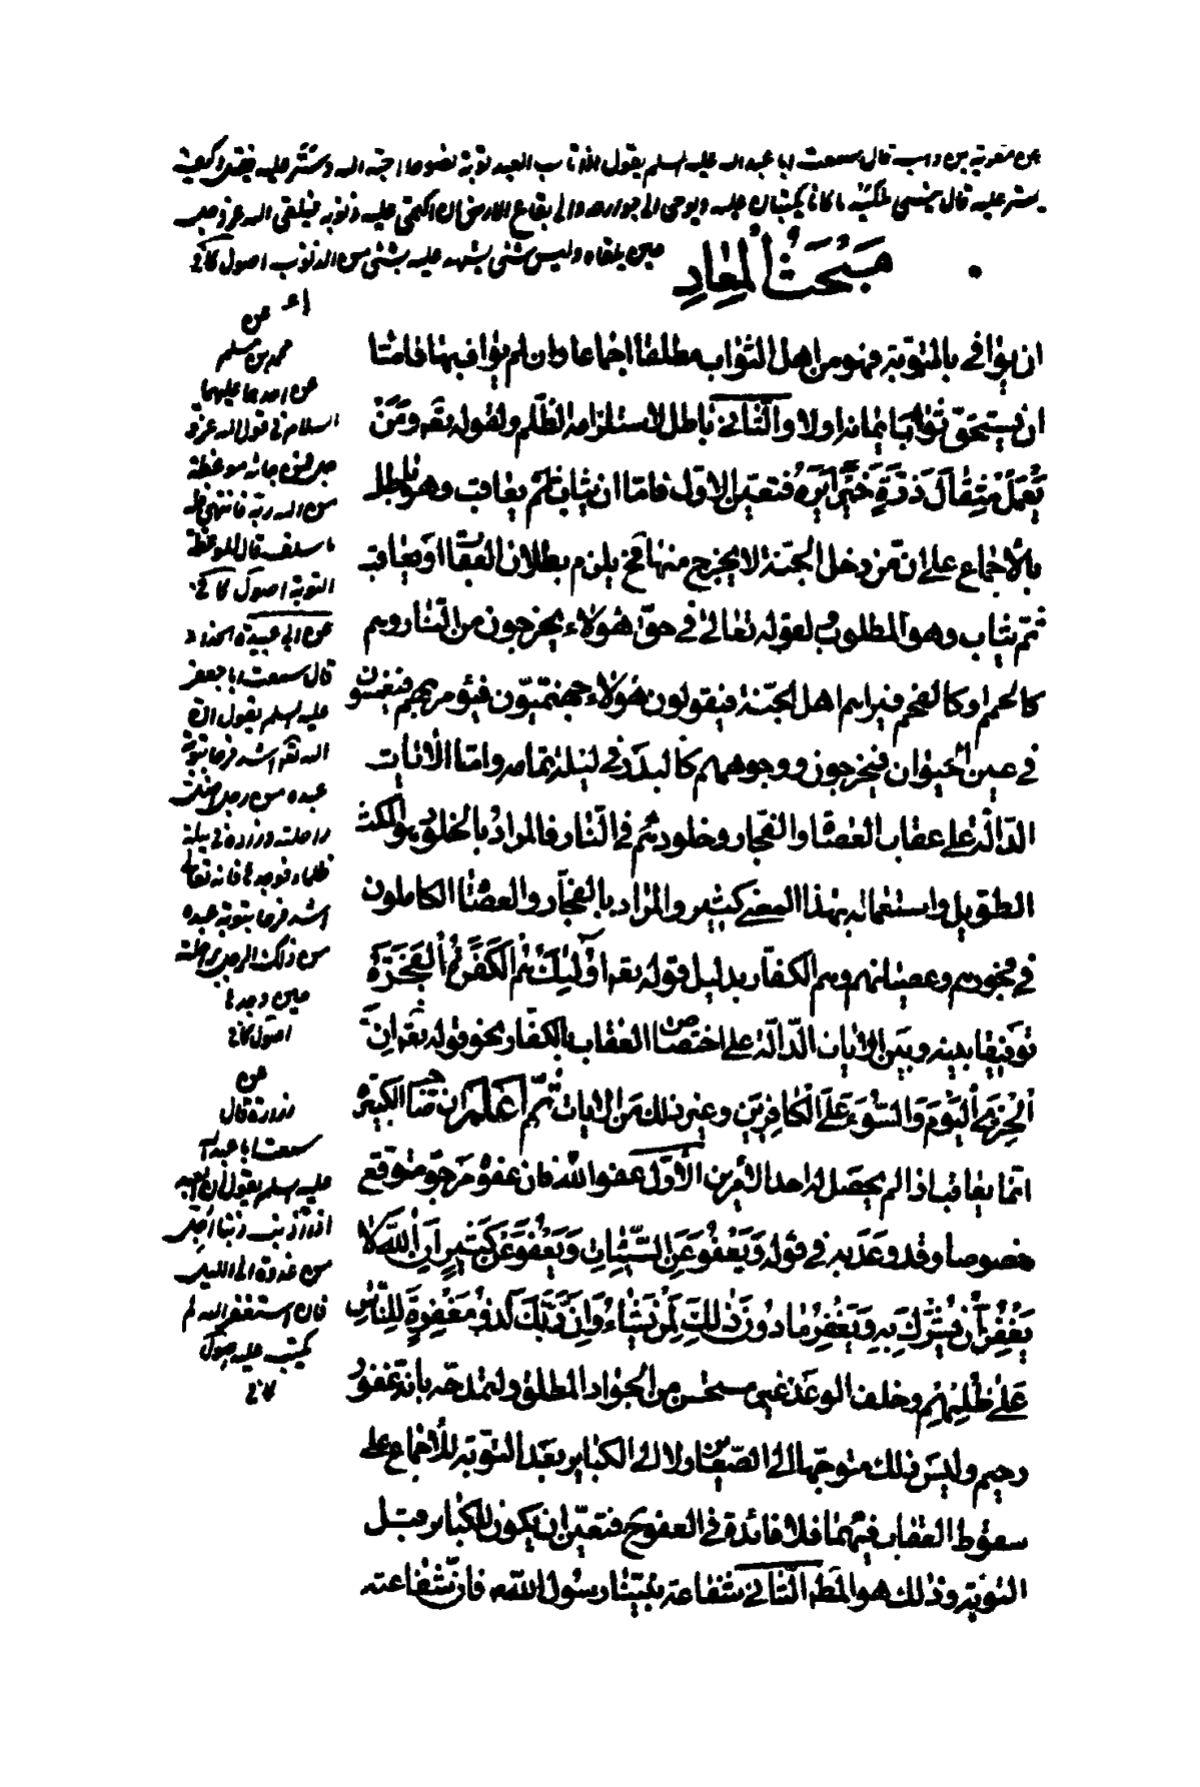 عن معوية بن وهب قال سمعت ابا عبد الله عليه السلم يقول اذا تاب العبد توبة نصوحا احبه الله وستر عليه فقلت وكيف
يستر عليه قال ينسى ملكيه ما كانا يكتبان عليه ويوحى الى جوارحه والى بقاع الارض ان اكتمى عليه ذنوبه فيلقى الله عز وجل
حين يلقاه وليس شئ يشهد عليه بشئ من الذنوب اصول كافى
مَبْحَثُ الْمَعادِ
ان يوافى بالتوبة فهو من اهل الثواب مطلقا اجماعا وان لم يواف بها فامّا
ان يستحقّ ثوابا بايمانه اولا والثانى باطل لاستلزامه الظلم ولقوله تعه وَمَنْ
يَعْمَلْ مِثْقَالَ ذَرَّةٍ خَيْراً يَرَهُ فتعيّن الاوّل فامّا ان يثاب ثمّ يعاقب وهو باطل
بالأجماع على انّ من دخل الجنّة لا يخرج منها فح يلزم بطلان العقاب او يعاقب
ثمّ يثاب وهو المطلوب ولقوله تعالى فى حقّ هؤلاء يخرجون من النّار وهم
كالحمم او كالفحم فيراهم اهل الجنّة فيقولون هؤلاء جهنّميّون فيؤمر بهم فيغمسون
فى عين الحيوان فيخرجون ووجوههم كالبدر فى ليلة تمامه وامّا الأيات
الدّالّة على عقاب العصاة والفجار وخلودهم فى النّار فالمراد بالخلود هو المكث
الطويل واستعماله بهذا المعنى كثير والمراد بالفجّار والعصاة الكاملون
فى فجورهم وعصيانهم وهم الكفّار بدليل قوله تعه اُولٰئِكَ هُمُ الْكَفَرَةُ الْفَجَرَةُ
توفيقا بينه وبين الايات الدّالّة على اختصاص العقاب بالكفّار نحو قوله تعه انّ
الْخِزْىَ الْيَوْمَ وَالسُّوءَ عَلَى الْكافِرينَ وغير ذلك من الايات ثُمّ اعلم ان صاحب الكبيرة
انّما يعاقب اذا لم يحصل له احد الأمرين الأوّل عفو الله فان عفوه مرجوّ متوقع
خصوصا وقد وعد به فى قوله وَيَعْفُو عَنِ السَّيِّئاتِ وَيَعْفُو عَنْ كَثيرٍ اِنَّ اللهَ لا
يَغْفِرُ أَنْ يُشْرَكَ بِهِ وَيَغْفِرُ مَا دُونَ ذٰلِكَ لِمَنْ يَشَاءُ وَاِنَّ رَبَّكَ لَذُو مَغْفِرَةٍ لِلنّاسِ
عَلىٰ ظُلْمِهِمْ وخلف الوعد غير مستحسن من الجواد المطلق ولتمدّحه بانّه غفور
رحيم وليس ذلك متوجّها الى الصّغاير ولا الى الكباير بعد التوبة للأجماع على
سقوط العقاب فيهما فلا فائدة فى العفو ح فتعيّن ان يكون للكباير قبل
التوبة وذلك هو المط الثانى شفاعة نبيّنا رسول الله فانّ شفاعته
عن
محمد بن مسلم
عن احدهما عليهما
السلام فى قول الله عز و
جل فمن جائه موعظة
من ربه فانتهى فله
ما سلف قال الموعظة
التوبة اصول كافى
عن ابى عبيدة الحذاء
قال سمعت ابا جعفر
عليه السلم يقول ان
الله تعه اشد فرحا بتوبة
عبده من رجل اضل
راحلته وزاده فى ليلة
ظلماء فوجدها فالله تعالى
اشد فرحا بتوبة عبده
من ذلك الرجل براحلته
حين وجدها
اصول كافى
عن
زرارة قال
سمعت ابا عبد الله
عليه السلم يقول ان العبد
اذا اذنب ذنبا اجل
من غدوة الى الليل
فان استغفر الله لم
يكتب عليه اصول
كافى